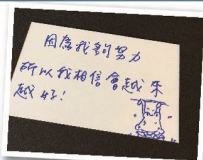 因為我夠努力
所以我相信會越來
越好!